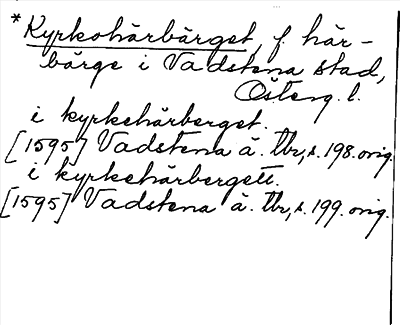 *Kyrkohärbärget, f. här-
bärge i Vadstena stad,
Österg. l.
i kyrkehärberget.
[1595] Vadstena ä. tbr, s. 198. orig.
i kyrkehärbergett.
[1595] Vadstena ä. tbr, s. 199. orig.